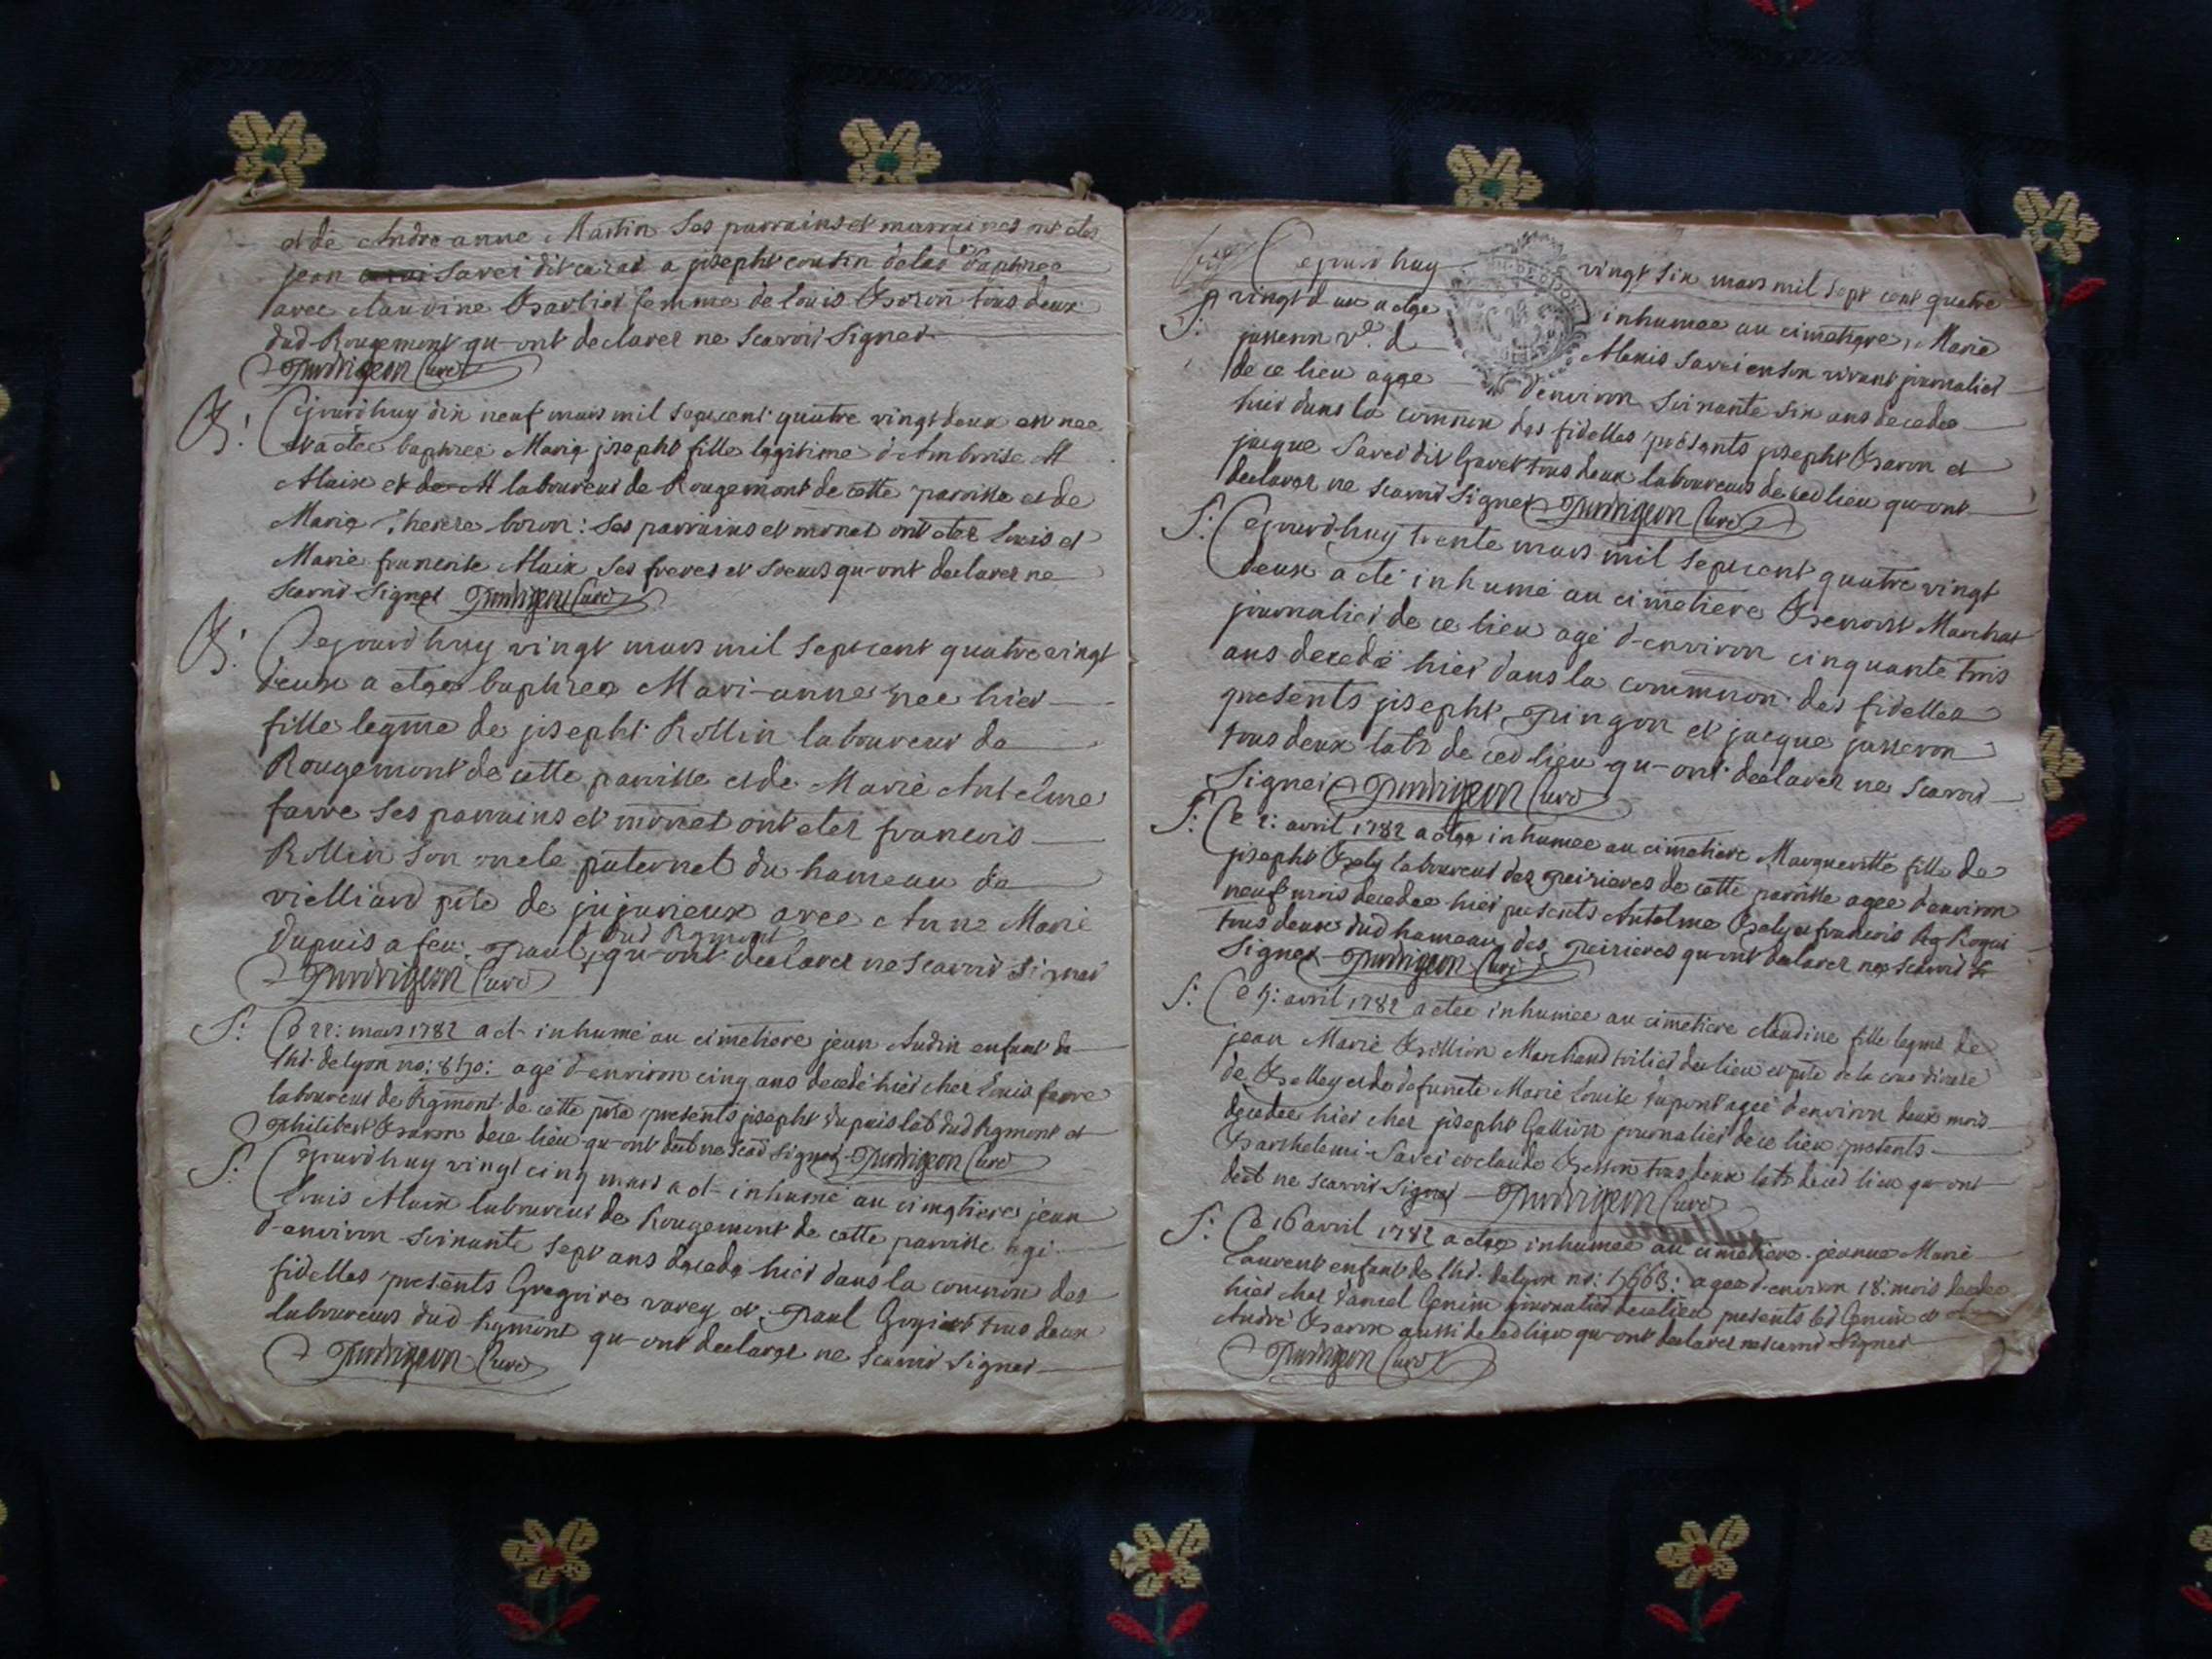 et de Andre anne Martin Ses parrains et marraines ont etes
jean Savei dit cairat a joseph cousin de las baptizee
avec claudine Barlier femme de louis Boron tous deux
dud Rougemont qu-ont declarer ne Scavoir Signer
Curé
B: Cejourdhuy dix neuf mars mil Sept cent quatre vingt deux est nee
et a etee baptizee Marie joseph fille legitime d'Ambroise M
Alaix et de M laboureur de Rougemont de cette parroisse et de
Marie Therese boron: Ses parrains et mōnes ont etes Louis et
Marie francoise Alaix Ses freres et Soeurs qu-ont declarer ne
Scavoir Signer Curé
B: Cejourdhuy vingt mars mil Sept cent quatre vingt
deux a etee baptizee Mari-anne nee hier
fille legme de joseph Rollin laboureur de
Rougemont de cette parroisse et de Marie Antelme
favre Ses parrains et mōnes ont etes francois
Rollin Son oncle paternel du hameau de
vielliard psse de jujurieux avec Anne Marie
dud Rgmont
Dupuis a feu: Paul, qu-ont declarer ne Scavoir Signer
Curé
S: Ce 22: mars 1782 a et- inhumé au cimetiere jean Audin enfant de
lhd. de lyon no: agé d-environ cinq ans decedé hier chez Louis favre
laboureur de Rgmont de cette psse presents joseph Dupuis lab dud Rgmont et
philibert Baron de ce lieu qu-ont declt ne Scad Signer Curé
S: Cejourdhuy vingt cinq mars a et- inhumé au cimetiere jean
Louis Alaix laboureur de Rougemont de cette parroisse agé
d-environ Soixante Sept ans decede hier dans la commōn des
fidelles presents Gregoire varey et Paul tous deux
laboureurs dud Rgmont qu-ont declarer ne Scavoir Signer
Curé
Cejourdhuy vingt six mars mil Sept cent quatre
S: vingt deux a etee inhumee au cimetiere, Marie
jasseron ve. d Alexis Savei en son vivant journalier
de ce lieu agee d'environ Soixante Six ans decedee
hier dans la commōn des fidelles presents joseph Baron et
jacque Savei dit Gavet tous deux laboureurs de ced lieu qu-ont
declarer ne Scavoir Signer Curé
S: Cejourdhuy trente mars mil Sept cent quatre vingt
deux a eté inhumé au cimetiere Benoist Marchat
journalier de ce lieu agé d-environ cinquante trois
ans decedé hier dans la commōn des fidelles
presents joseph Pingon et jacque jasseron
tous deux labs de ced lieu qu-ont declarer ne Scavoir
Signer Curé
S: Ce 2: avril 1782 a etee inhumee au cimetiere Margueritte fille de
joseph Bely laboureur des peirieres de cette parroisse agee d'environ
neuf mois decedee hier presents Antelme Bely et francois
tous deux dud hameau des peirieres qu-ont declarer ne Scavoir
Signer Curé
S: Ce avril 1782 a etee inhumee au cimetiere claudine fille legme de
jean Marie Billion Marchand toilier du lieu et psse de la
de Belley et de defuncte Marie Louise Dupont agee d'environ deux mois
decedee hier chez joseph Gallion journalier de ce lieu presents
Barthelemi Savei et claude Besson tous deux labs de ced lieu qu-ont
declt ne Scavoir Signer Curé
S: Ce 16 avril 1782 a etee inhumee au cimetiere jeanne Marie
Laurent enfant de lhd. de lyon no: agee d-environ 18: mois decedee
hier chez Daniel Genin journalier de ce lieu presents led Genin et
André Baron aussi de ced lieu qu-ont declarer ne Scavoir Signer
Curé